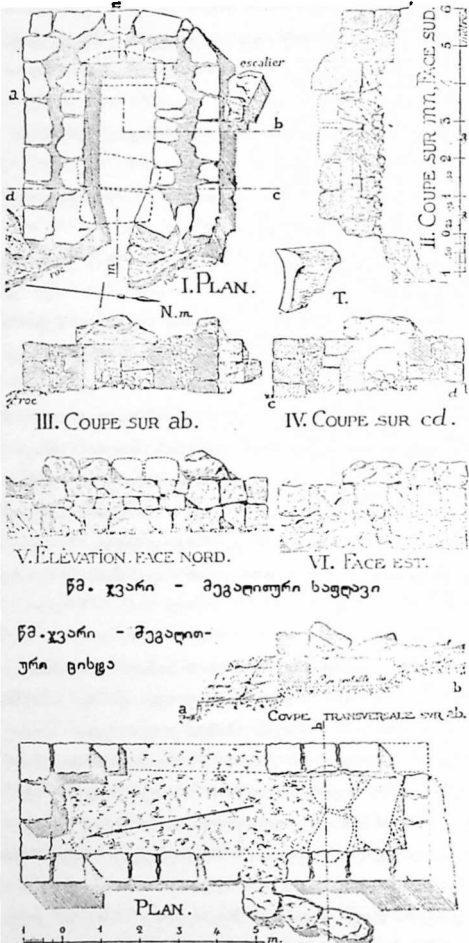 n
escalier
a
b
d
c
m
I. PLAN.
N.m.
T.
II. COUPE SUR mn, FACE SUD.
roc
III. COUPE SUR ab.
c
roc
d
IV. COUPE SUR cd.
V. ÉLÉVATION. FACE NORD.
VI. FACE EST.
წმ. ჯვარი - მეგალითური საფლავი
წმ. ჯვარი - მეგალით-
ური ცისტა
a
b
COUPE TRANSVERSALE SUR ab.
PLAN.
1 0 1 2 3 4 5 m.